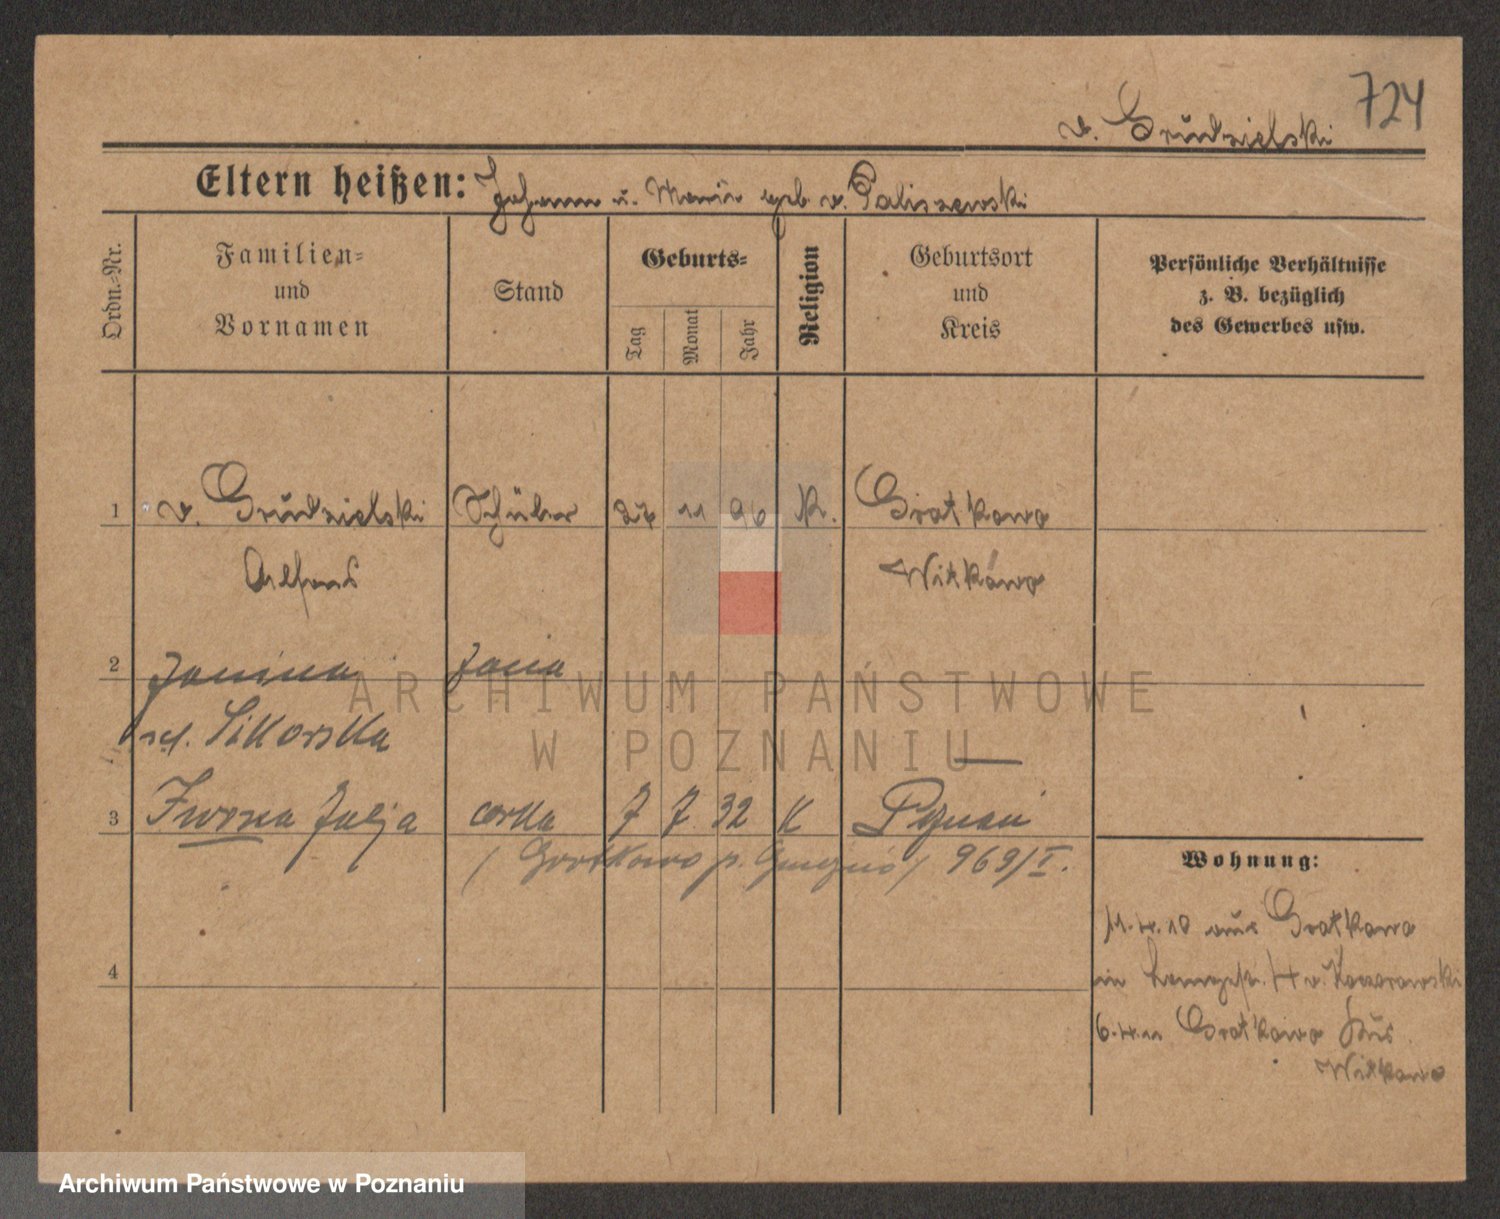 724
v. Grudzielski
Eltern heißen: Johann u. Maria geb v. Paliszewski
Ordn.-Nr.
Familien-
und
Vornamen
Stand
Geburts-
Tag
Monat
Jahr
Religion
Geburtsort
und
Kreis
Persönliche Verhältnisse
z. B. bezüglich
des Gewerbes usw.
1 v. Grudzielski Schüler 27 11 96 K. Gratkowo
Alfons Witkowo
2 Janina żona
ARCHIWUM PAŃSTWOWE
Sikorska
W POZNANIU
3 Iwona Julja córka 7 7 32 K Poznań
(Gortkowo p. Gniezno) 969/I.
Wohnung:
11.4.10 aus Gratkowo
in 14 v. Koczorowski
4
6.4.11 Gratkowo Krs.
Witkowo
Archiwum Państwowe w Poznaniu